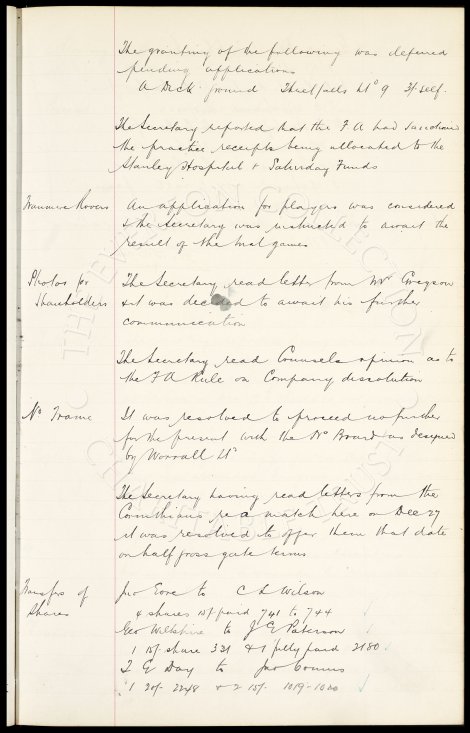 The granting of the following was deferred
pending applications
A Dick ground Threlfalls Ltd 9 & self.
The Secretary reported that the F A had sanctioned
the practice receipts being allocated to the
Stanley Hospital & Saturday Funds
Tranmere Rovers An application for players was considered
& the Secretary was instructed to await the
result of the trial games
Photos for The Secretary read letter from Mr Gregson
Shareholders & it was decided to await his further
communication
The Secretary read Counsels opinion as to
the F A Rule on Company dissolution
No Frame It was resolved to proceed no further
for the present with the No Board as designed
by Worrall Ld
The Secretary having read letters from the
Corinthians re a match here on Dec 27
it was resolved to offer them that date
on half gross gate terms
Transfrs of Jno to C L Wilson
Shares 4 shares 15/ paid 741 to 744
Geo Wiltshire to J E Paterson
1 15/ share 321 & 1 fully paid 2180
T E Day to Jno
1 20/- 2248 & 2 15/- 1019-1020
THE EVERTON COLLECTION
CHARITABLE TRUST